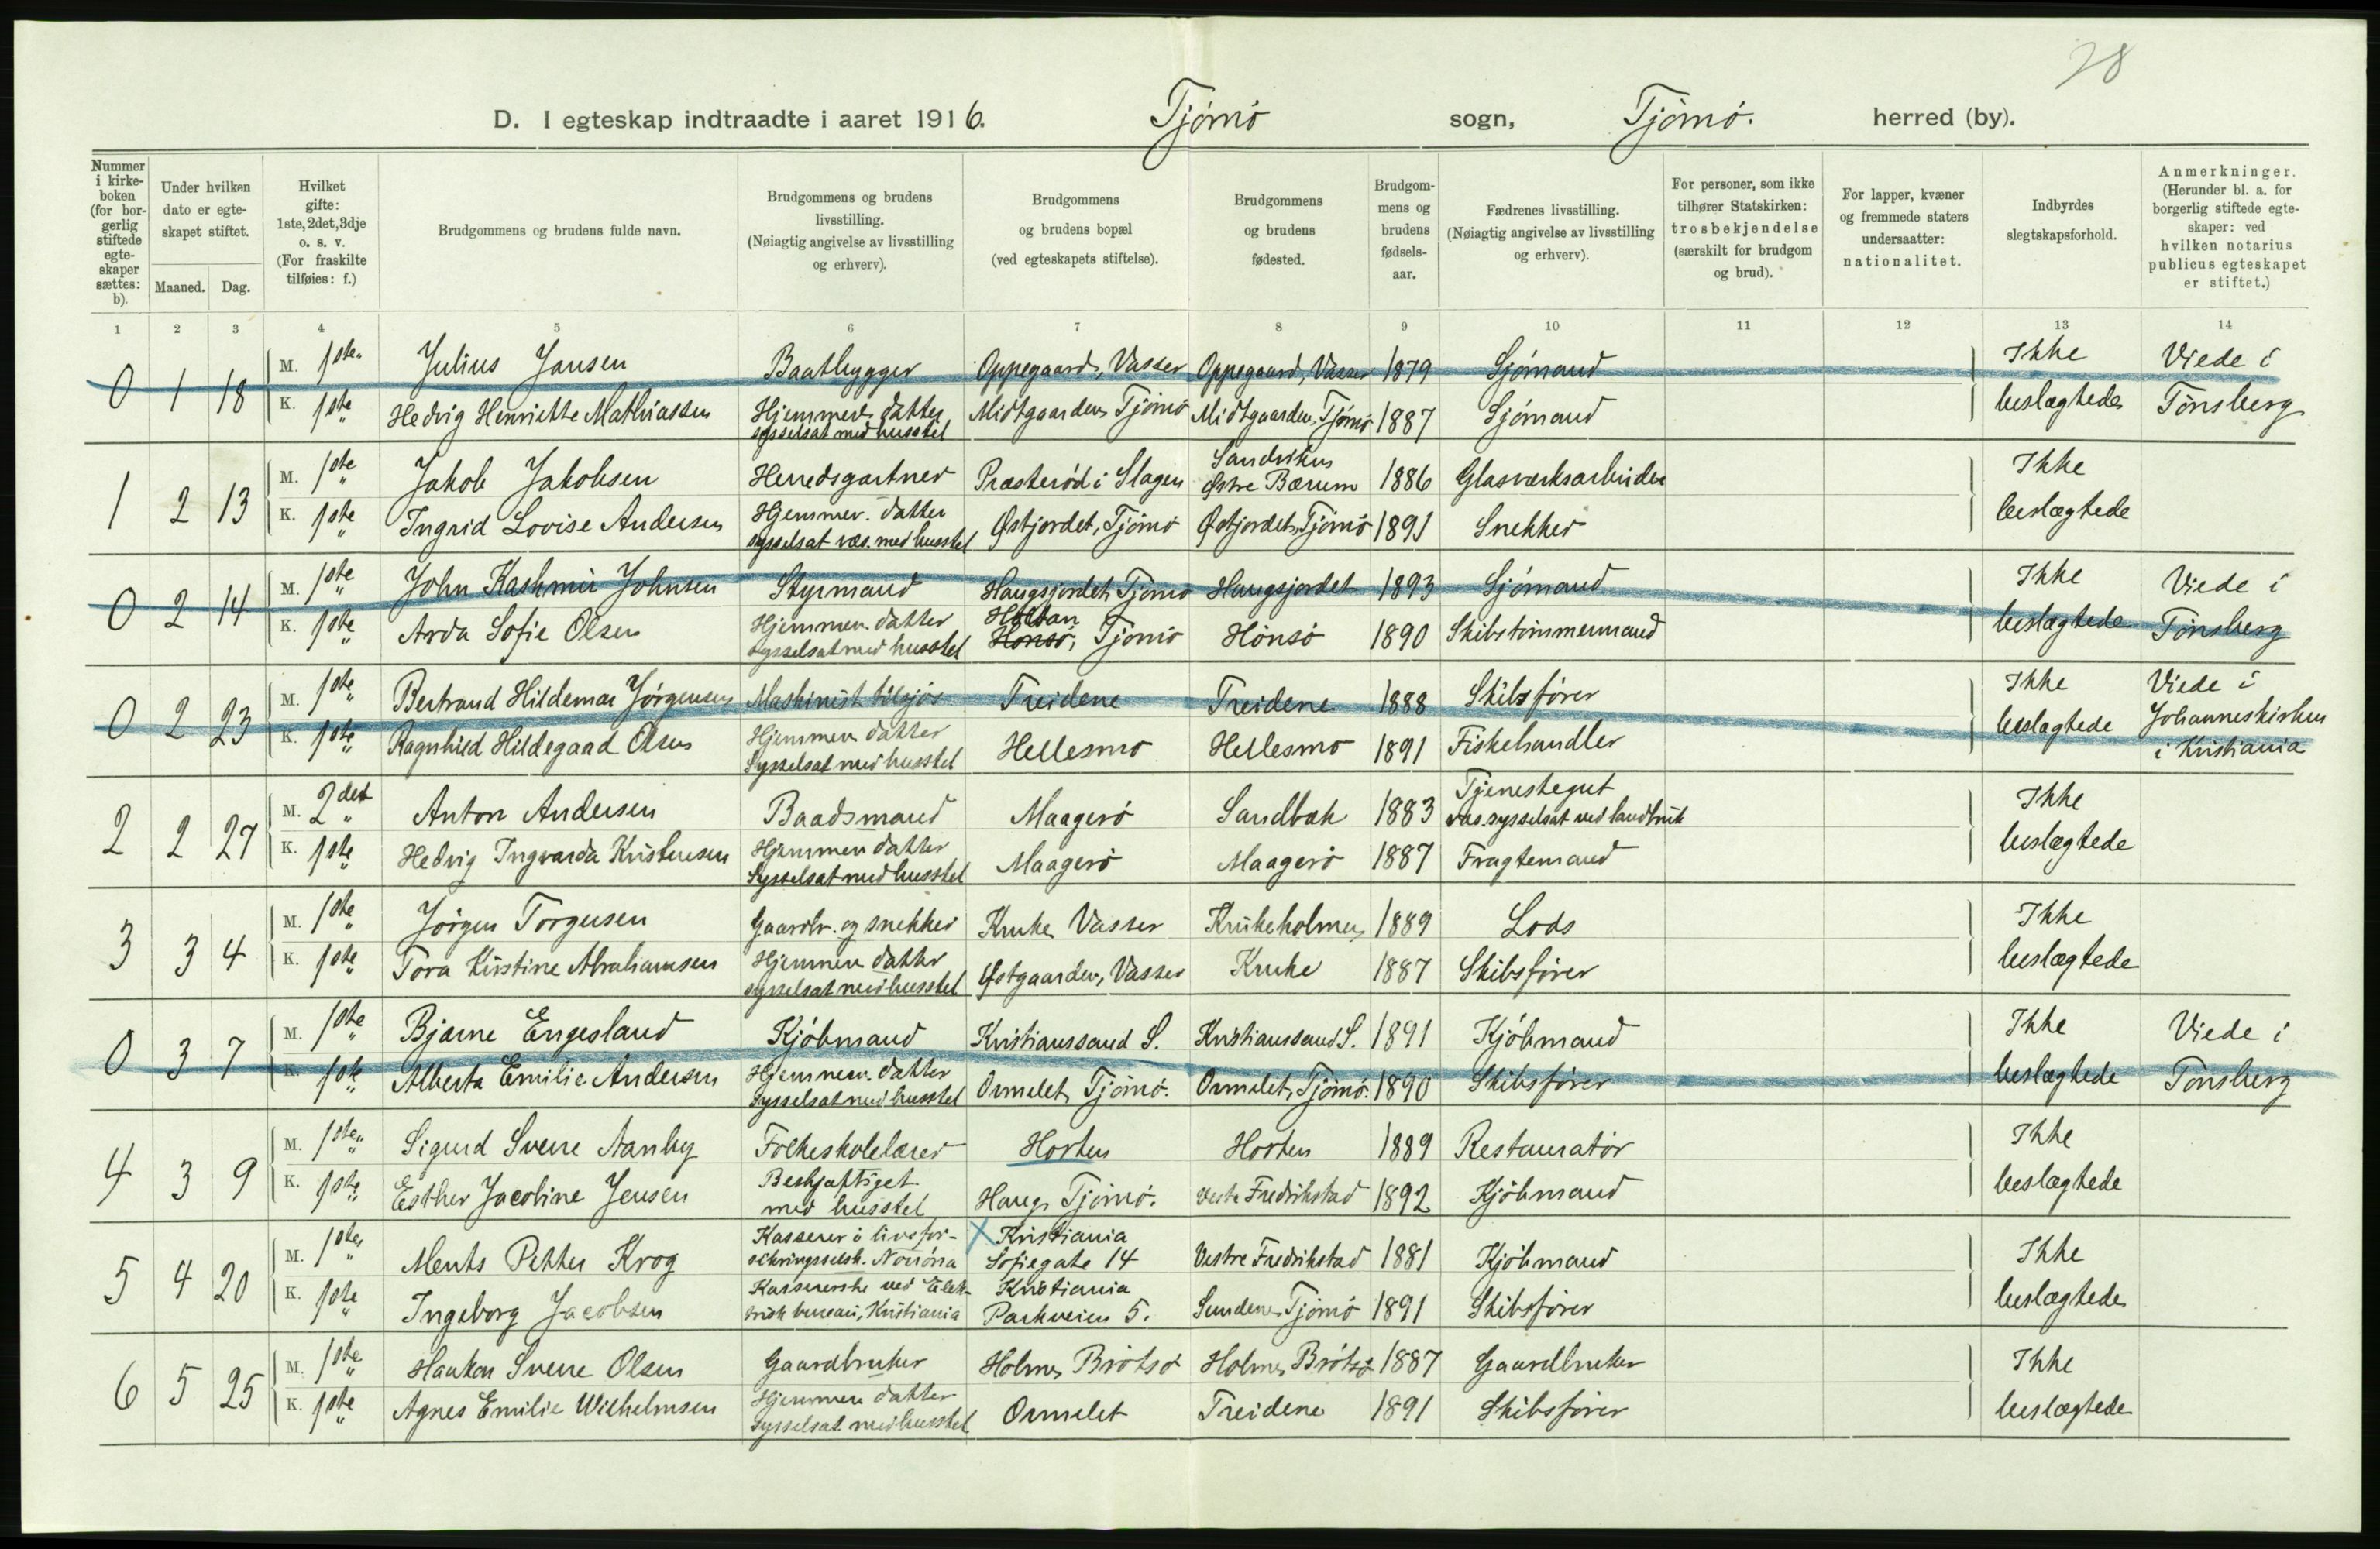 28
D. I egteskap indtraadte i aaret 1916. Tjømø sogn, Tjømø. herred (by).
Nummer i kirke-boken (for bor-gerlig stiftede egte-skaper sættes: b).
Under hvilken dato er egte-skapet stiftet.
Maaned. Dag.
Hvilket gifte: 1ste, 2det, 3dje o. s. v. (For fraskilte tilføies: f.)
Brudgommens og brudens fulde navn.
Brudgommens og brudens livsstilling. (Nøiagtig angivelse av livsstilling og erhverv).
Brudgommens og brudens bopæl (ved egteskapets stiftelse).
Brudgommens og brudens fødested.
Brudgom-mens og brudens fødsels-aar.
Fædrenes livsstilling. (Nøiagtig angivelse av livsstilling og erhverv).
For personer, som ikke tilhører Statskirken: trosbekjendelse (særskilt for brudgom og brud).
For lapper, kvæner og fremmede staters undersaatter: nationalitet.
Indbyrdes slegtskapsforhold.
Anmerkninger. (Herunder bl. a. for borgerlig stiftede egte-skaper: ved hvilken notarius publicus egteskapet er stiftet.)
1 2 3 4 5 6 7 8 9 10 11 12 13 14
0 1 18 M. 1ste Julius Jansen Baatbygger Oppegaard, Vasser Oppegaard, Vasser 1879 Sjømand Ikke Viede i
K. 1ste Hedvig Henriette Mathiassen Hjemmev. datter sysselsat med husstel Midtgaarden, Tjømø Midtgaarden, Tjømø 1887 Sjømand beslægtede Tønsberg
1 2 13 M. 1ste Jakob Jakobsen Herredsgartner Præsterød i Slagen Sandviken Østre Bærum 1886 Glasværksarbeider Ikke
K. 1ste Ingrid Lovise Andersen Hjemmev. datter sysselsat væs. med husstel Østjordet, Tjømø Østjordet, Tjømø 1891 Snekker beslægtede
0 2 14 M. 1ste John Kashmir Johnsen Styrmand Haugsjordet, Tjømø Haugsjordet 1893 Sjømand Ikke Viede i
K. 1ste Arda Sofie Olsen Hjemmev. datter sysselsat med husstel Holtan Hønsø, Tjømø Hønsø 1890 Skibstømmermand beslægtede Tønsberg
0 2 23 M. 1ste Bertrand Hildemar Jørgensen Maskinist tilsjøs Treidene Treidene 1888 Skibsfører Ikke Viede i
K. 1ste Ragnhild Hildegaard Olsen Hjemmev. datter Sysselsat med husstel Hellesmo Hellesmo 1891 Fiskehandler beslægtede Johanneskirken i Kristiania
2 2 27 M. 2det Anton Andersen Baadsmand Maagerø Sandbæk 1883 Tjenestegut væs. sysselsat ved landbruk Ikke
K. 1ste Hedvig Ingvarda Kristensen Hjemmev. datter Sysselsat med husstel Maagerø Maagerø 1887 Fragtemand beslægtede
3 3 4 M. 1ste Jørgen Torgersen Gaardbr. og snekker Kruke Vasser Krukeholmen 1889 Lods Ikke
K. 1ste Tora Kristine Abrahamsen Hjemmev. datter sysselsat med husstel Østgaarden, Vasser Kruke 1887 Skibsfører beslægtede
0 3 7 M. 1ste Bjarne Engesland Kjøbmand Kristianssand S. Kristianssand S. 1891 Kjøbmand Ikke Viede i
K. 1ste Alberta Emilie Andersen Hjemmev. datter Sysselsat med husstel Ormelet, Tjømø. Ormelet, Tjømø. 1890 Skibsfører beslægtede Tønsberg
4 3 9 M. 1ste Sigurd Sverre Aanby Folkeskolelærer Horten Horten 1889 Restauratør Ikke
K. 1ste Esther Jacobine Jensen Beskjæftiget med husstel Haug, Tjømø. Vestre Fredrikstad 1892 Kjøbmand beslægtede
5 4 20 M. 1ste Ments Petter Krog Kasserer i livsfor-sikringsselsk. Norröna X Kristiania Sofiegate 14 Vestre Fredrikstad 1881 Kjøbmand Ikke
K. 1ste Ingeborg Jacobsen Kassererske ved Elek-trisk bureau, Kristiania Kristiania Parkveien 5. Sundene, Tjømø 1891 Skibsfører beslægtede
6 5 25 M. 1ste Haakon Sverre Olsen Gaardbruker Holmen, Brøtsø Holmen, Brøtsø 1887 Gaardbruker Ikke
K. 1ste Agnes Emilie Wilhelmsen Hjemmev. datter Sysselsat med husstel Ormelet Treidene 1891 Skibsfører beslægtede